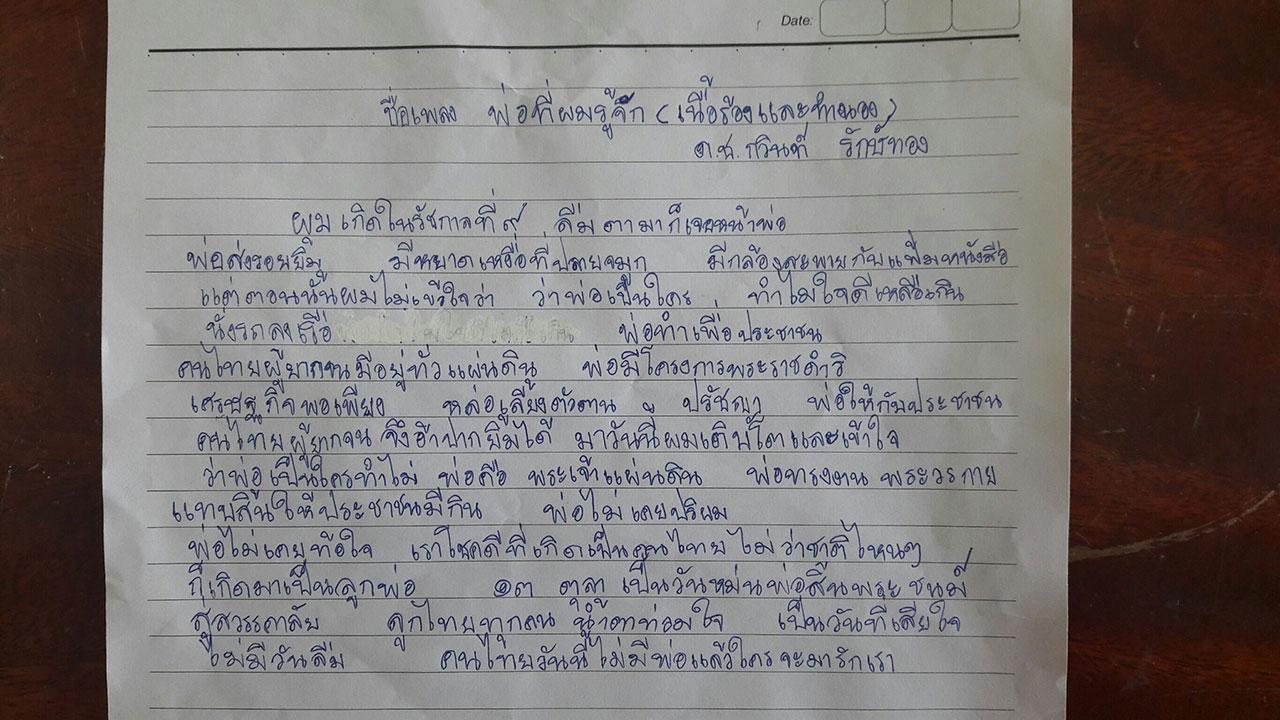 Date:
ชื่อเพลง พ่อที่ผมรู้จัก (เนื้อร้องและทำนอง)
ด.ช. กวินท์ รักษ์ทอง
ผมเกิดในรัชกาลที่ ๙ ลืมตามาก็เจอหน้าพ่อ
พ่อส่งรอยยิ้ม มีหยาดเหงื่อที่ปลายจมูก มีกล้องสะพายกับแฟ้มหนังสือ
แต่ตอนนั้นผมไม่เข้าใจว่า ว่าพ่อเป็นใคร ทำไมใจดีเหลือเกิน
นั่งรถลงเรือ พ่อทำเพื่อประชาชน
คนไทยผู้ยากจนมีอยู่ทั่วแผ่นดิน พ่อมีโครงการพระราชดำริ
เศรษฐกิจพอเพียง หล่อเลี้ยงตัวตน ปรัชญา พ่อให้กับประชาชน
คนไทยผู้ยากจน จึงอ้าปากยิ้มได้ มาวันนี้ผมเติบโตและเข้าใจ
ว่าพ่อเป็นใครทำไม พ่อคือ พระเจ้าแผ่นดิน พ่อทรงงาน พระวรกาย
แทบสิ้นให้ประชาชนมีกิน พ่อไม่เคยปริยม
พ่อไม่เคยท้อใจ เราโชคดีที่เกิดเป็นคนไทย ไม่ว่าชาติไหนๆ
ก็เกิดมาเป็นลูกพ่อ ๑๓ ตุลา เป็นวันหม่นพ่อสิ้นพระชนม์
สู่สวรรคาลัย ลูกไทยทุกคน น้ำตาท่วมใจ เป็นวันที่เสียใจ
ไม่มีวันลืม คนไทยวันนี้ไม่มีพ่อแล้วใครจะมารักเรา